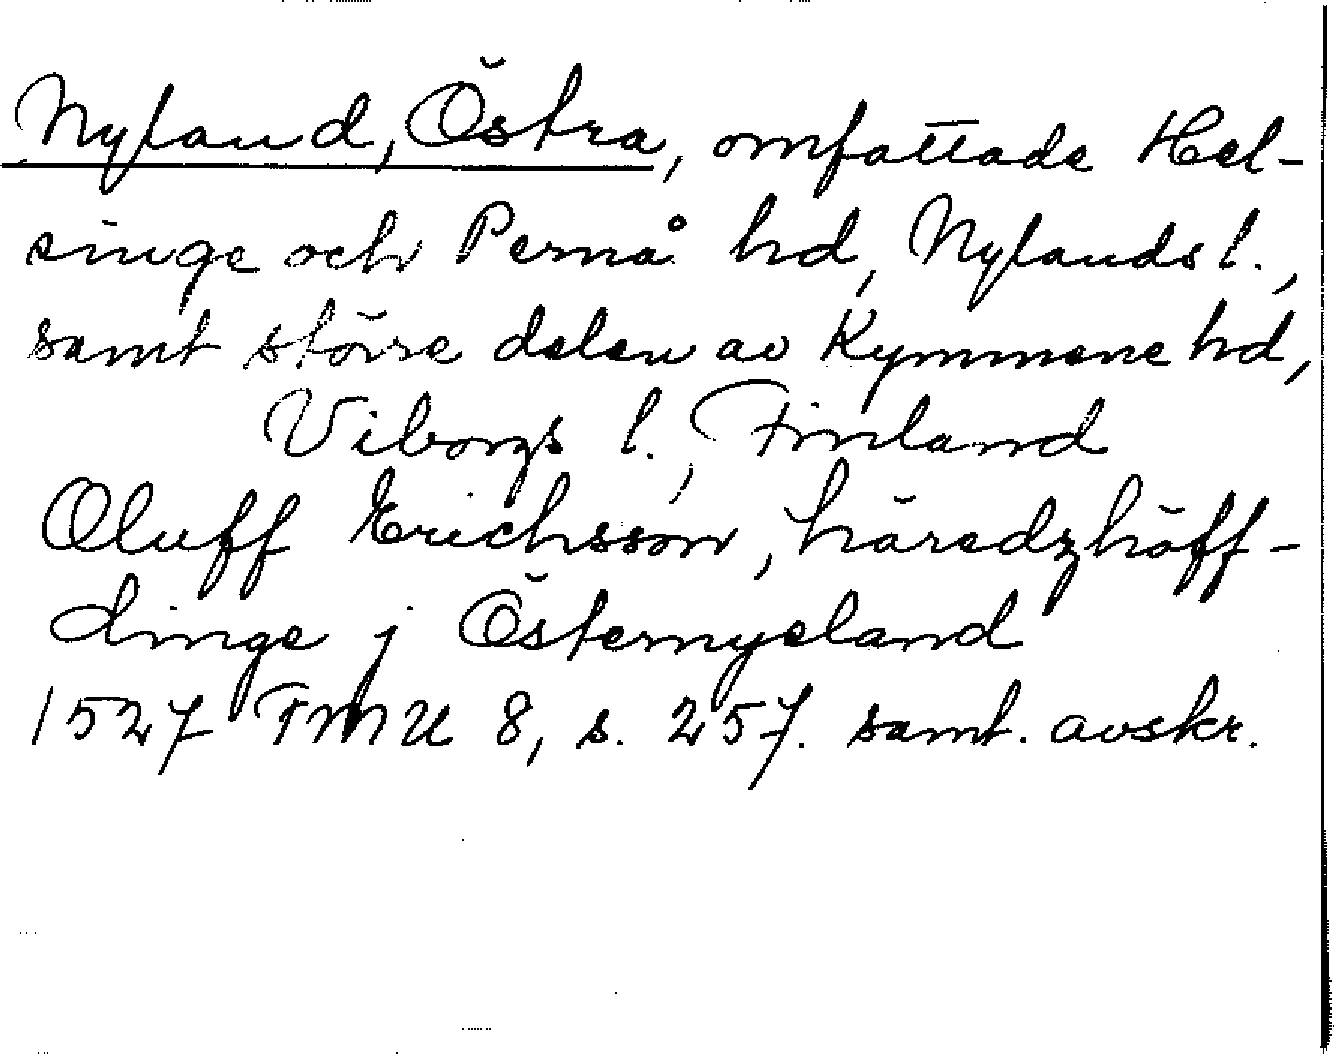 Nyland, Östra, omfattade Hel-
singe och Pernå hd, Nylands l.,
samt större delen av Kymmene hd,
Viborgs l., Finland
Oluff Erichsson, häredzhöff-
dinge j Östernyeland
1527 FMU 8, s. 257. samt. avskr.